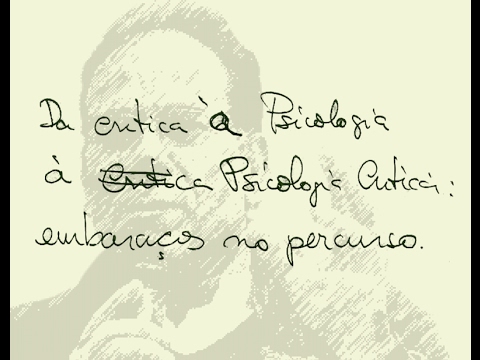 Da crítica à Psicologia
à Crítica Psicologia Crítica:
embaraços no percurso.